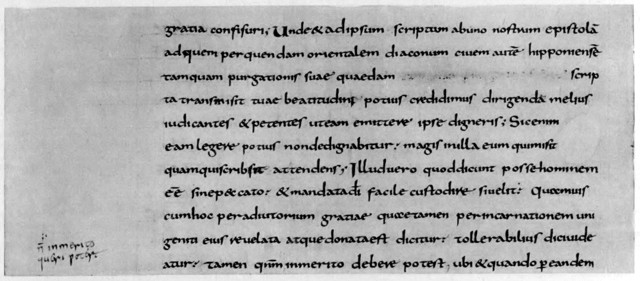 gratia confisuri; Unde & adipsum scriptum abuno nostrum epistolā
adquem perquendam orientalem diaconum ciuem autē hipponensē
tamquam purgationis suae quaedam scrip
ta transmisit tuae beatitudini potius credidimus dirigendā melius
iudicantes & petentes uteam emittere ipse digneris; Sicenim
eam legere potius nondedignabitur; magis inilla eum quimisit
quamquiscribsit attendens; Illuduero quoddicunt possehominem
eē sinepeccato; & mandatadī facile custodire siuelit; Quaemuis
cumhoc peradiutorium gratiae quaetamen perincarnationem uni
geniti eius reuelata atquedonataest dicitur; tollerabilius diciuide
atur; tamen inmerito debere potest, ubi & quando ꝑeandem
n̄ inmerito
quaeri potest